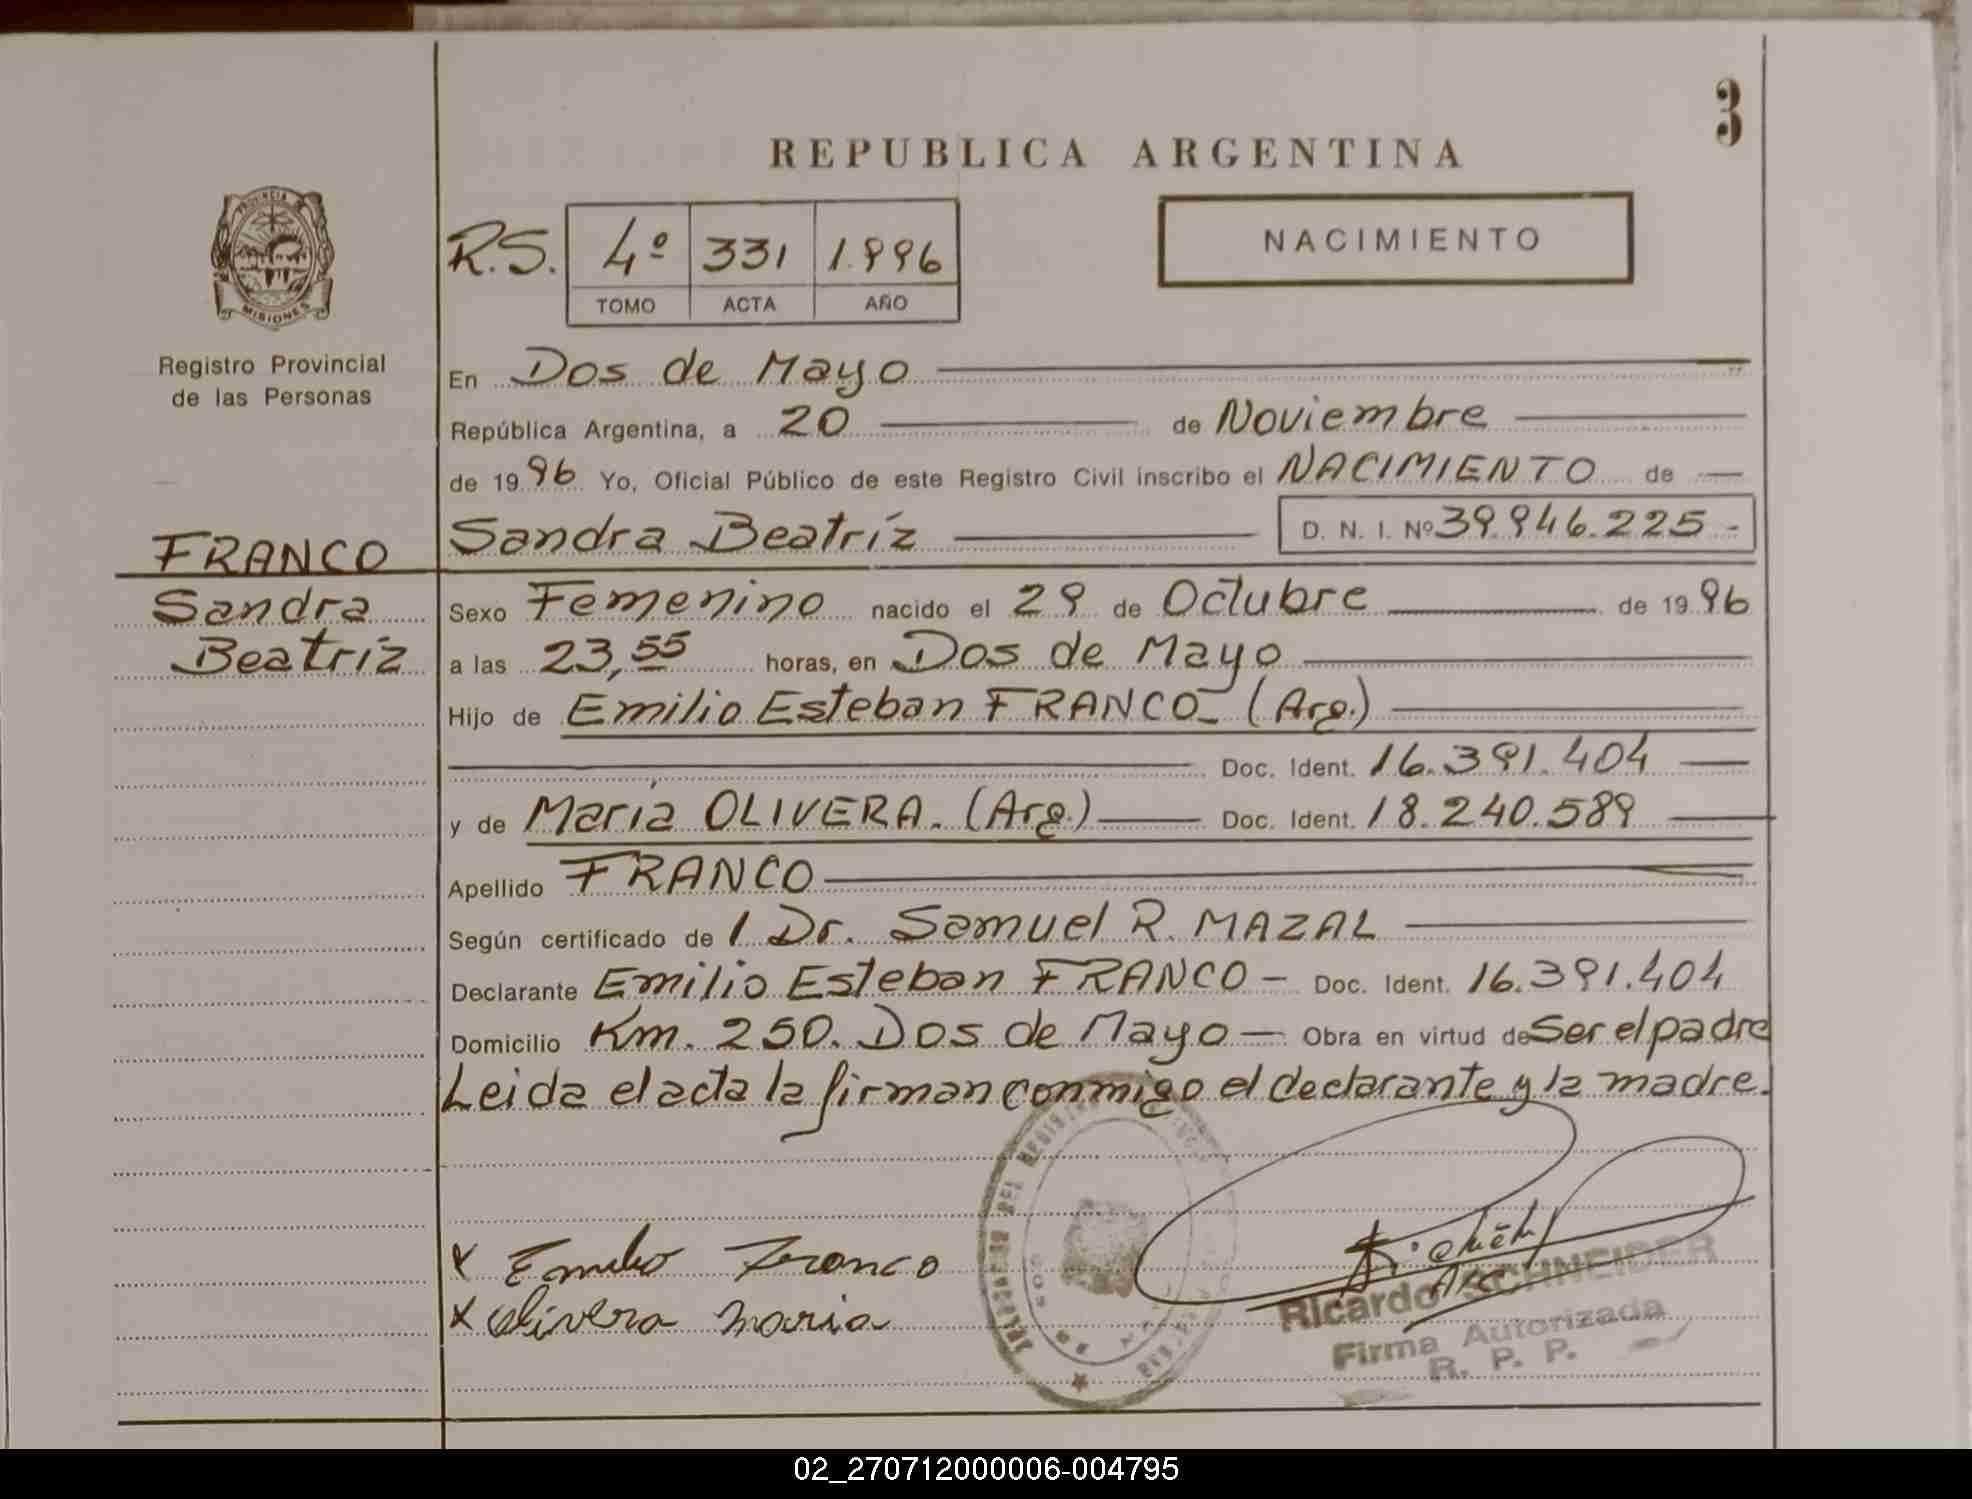 3
REPUBLICA ARGENTINA
PROVINCIA DE
MISIONES
R.S. 4º 331 1.996
TOMO ACTA AÑO
NACIMIENTO
Registro Provincial
de las Personas
En Dos de Mayo
República Argentina, a 20 de Noviembre
de 1996 Yo, Oficial Público de este Registro Civil inscribo el NACIMIENTO de
FRANCO
Sandra
Beatríz
Sandra Beatríz D. N. I. Nº 39.946.225.-
Sexo Femenino nacido el 29 de Octubre de 1996
a las 23,55 horas, en Dos de Mayo
Hijo de Emilio Esteban FRANCO- (Arg.)
Doc. Ident. 16.391.404
y de María OLIVERA. (Arg.) Doc. Ident. 18.240.589
Apellido FRANCO
Según certificado de / Dr. Samuel R. MAZAL
Declarante Emilio Esteban FRANCO - Doc. Ident. 16.391.404
Domicilio Km. 250. Dos de Mayo - Obra en virtud de Ser el padre
Leida el acta la firman conmigo el declarante y la madre.
x Emilio Franco
x Olivera Maria
Ricardo SCHNEIDER
Firma Autorizada
R. P. P.
02_270712000006-004795